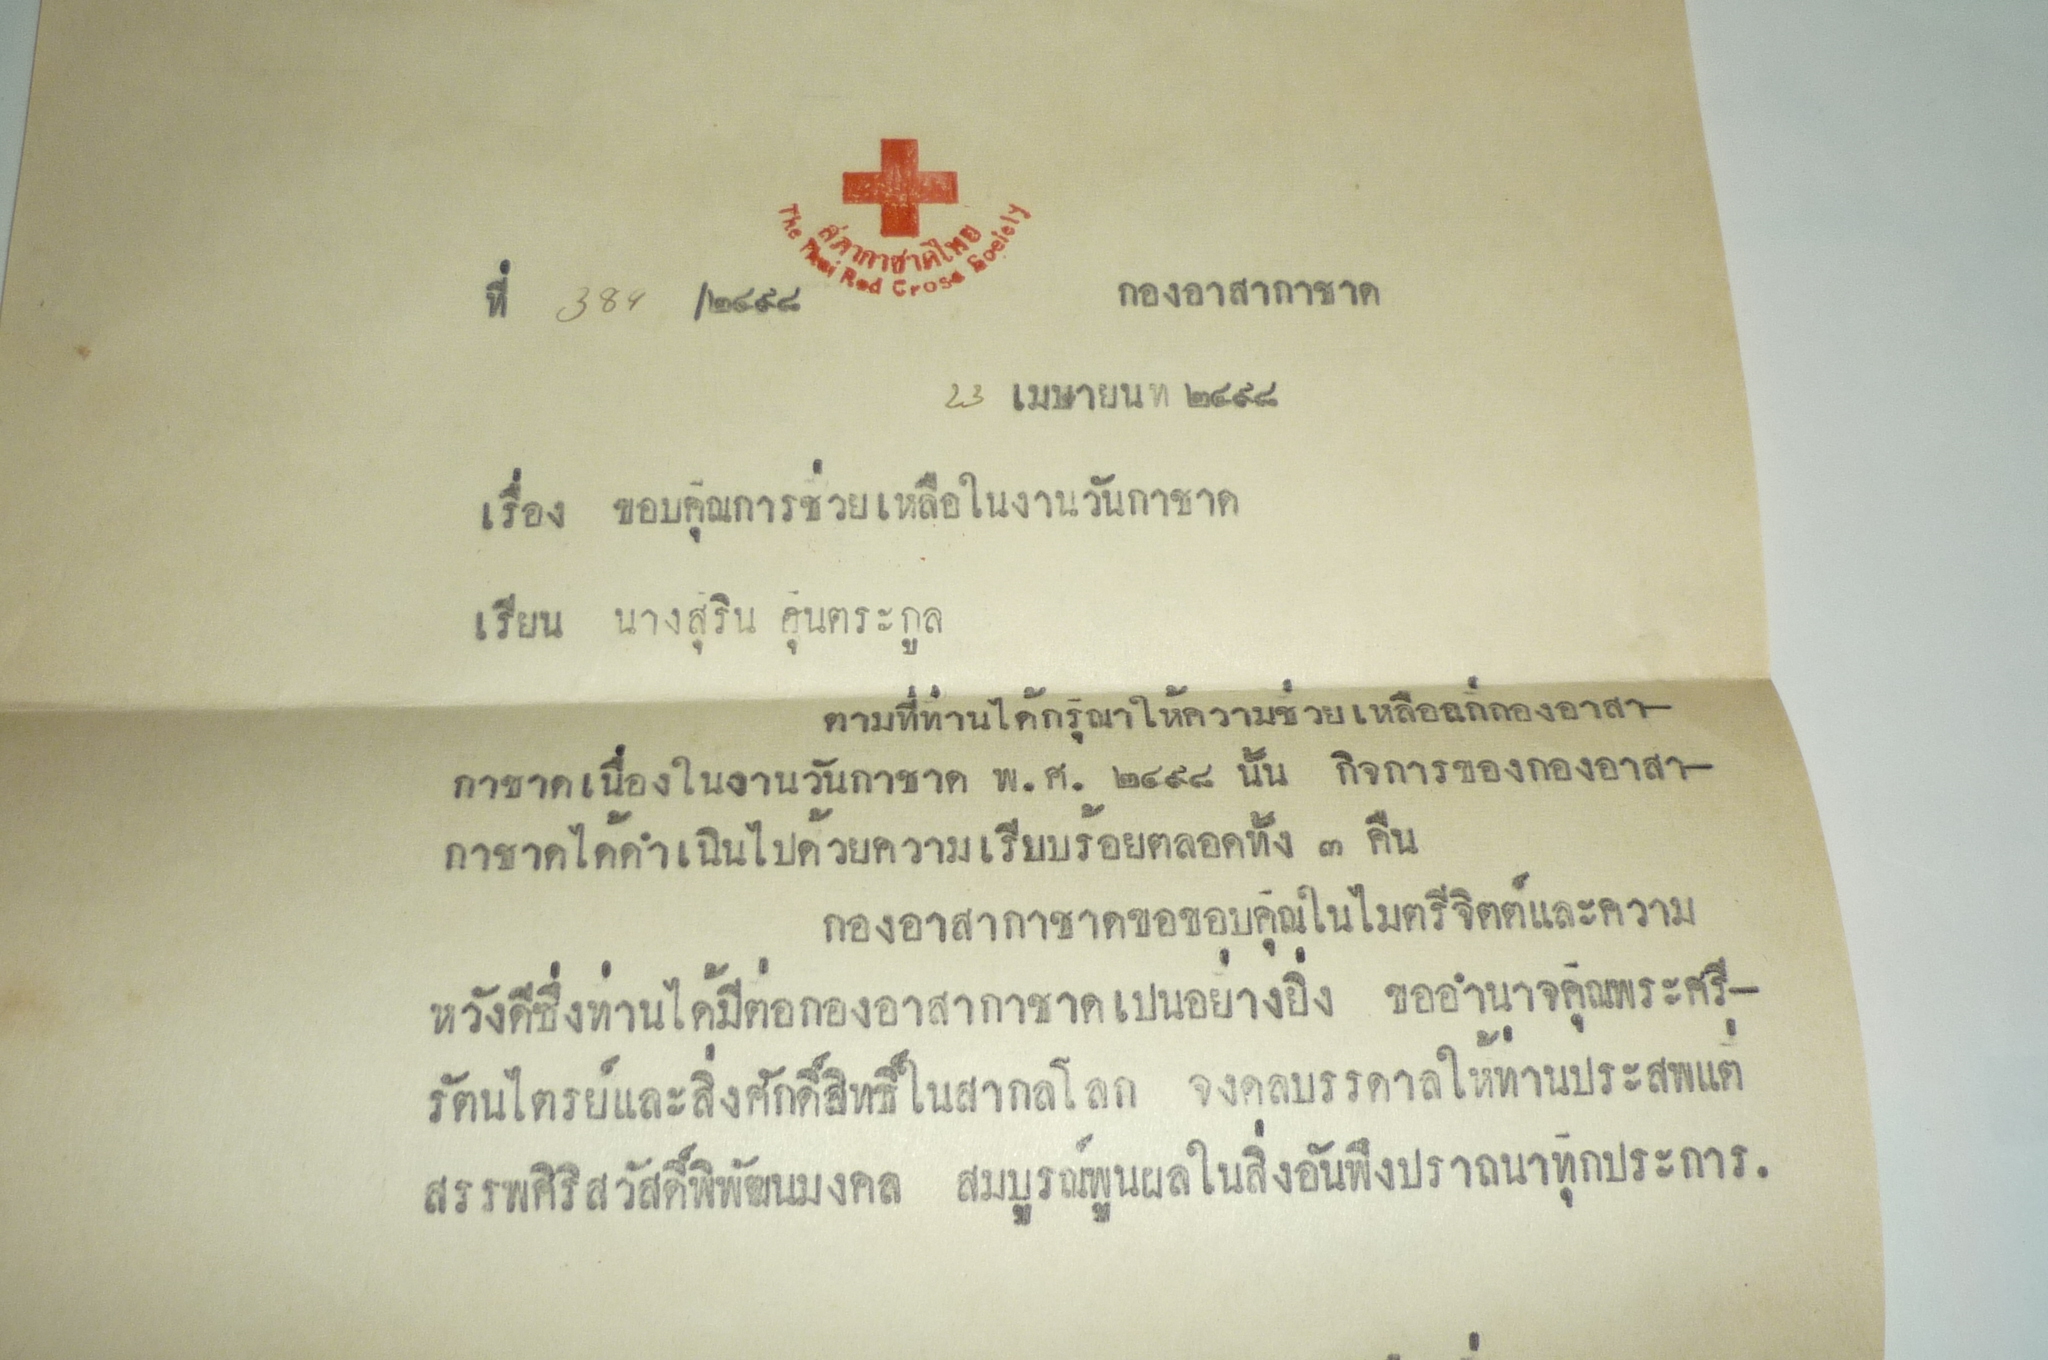 สภากาชาดไทย
The Thai Red Cross Society
ที่ 389 /๒๔๙๘ กองอาสากาชาด
23 เมษายน ๒๔๙๘
เรื่อง ขอบคุณการช่วยเหลือในงานวันกาชาด
เรียน นางสุริน คุ้นตระกูล
ตามที่ท่านได้กรุณาให้ความช่วยเหลือแก่กองอาสา-
กาชาดเนื่องในงานวันกาชาด พ.ศ. ๒๔๙๘ นั้น กิจการของกองอาสา-
กาชาดได้ดำเนินไปด้วยความเรียบร้อยตลอดทั้ง ๓ คืน
กองอาสากาชาดขอขอบคุณในไมตรีจิตต์และความ
หวังดีซึ่งท่านได้มีต่อกองอาสากาชาดเปนอย่างยิ่ง ขออำนาจคุณพระศรี-
รัตนไตรย์และสิ่งศักดิ์สิทธิ์ในสากลโลก จงดลบรรดาลให้ท่านประสพแต่
สรรพศิริสวัสดิ์พิพัฒนมงคล สมบูรณ์พูนผลในสิ่งอันพึงปราถนาทุกประการ.